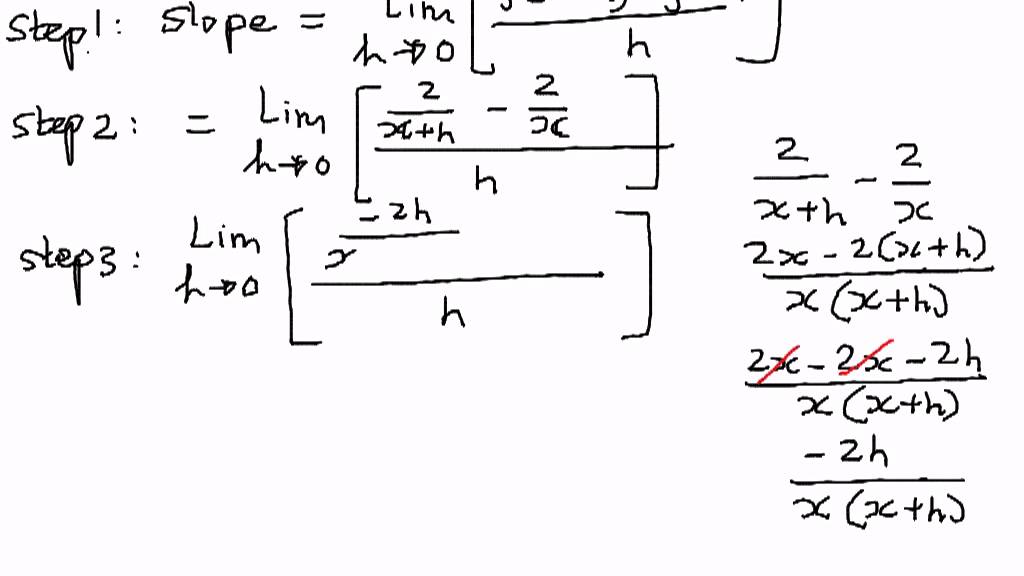 step1: Slope = Lim h→0 [ h ]
step2: = Lim h→0 [ 2/(x+h) - 2/x / h ]
step3: Lim h→0 [ -2h/x / h ]
2/(x+h) - 2/x
2x - 2(x+h) / x(x+h)
2x - 2x - 2h / x(x+h)
-2h / x(x+h)